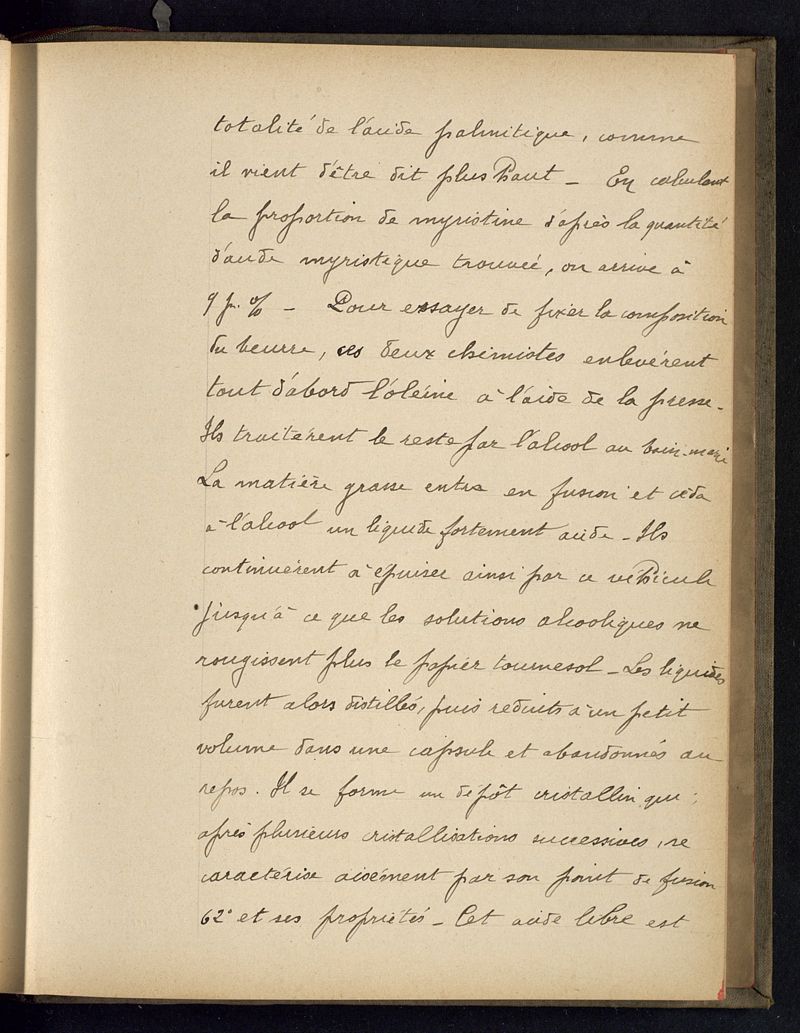 totalité de l'acide palmitique, comme
il vient d'être dit plus haut _ En calculant
la proportion de myristine d'après la quantité
d'acide myristique trouvée, on arrive à
9 p. % _ Pour essayer de fixer la composition
du beurre, ces deux chimistes enlevèrent
tout d'abord l'oléine à l'aide de la presse _
Ils traitèrent le reste par l'alcool au bain-marie
La matière grasse entra en fusion et céda
à l'alcool un liquide fortement acide _ Ils
continuèrent à épuiser ainsi par ce véhicule
jusqu'à ce que les solutions alcooliques ne
rougissent plus le papier tournesol _ Les liquides
furent alors distillés, puis réduits à un petit
volume dans une capsule et abandonnés au
repos. Il se forme un dépôt cristallin qui,
après plusieurs cristallisations successives, se
caractérise aisément par son point de fusion
62° et ses propriétés _ Cet acide libre est